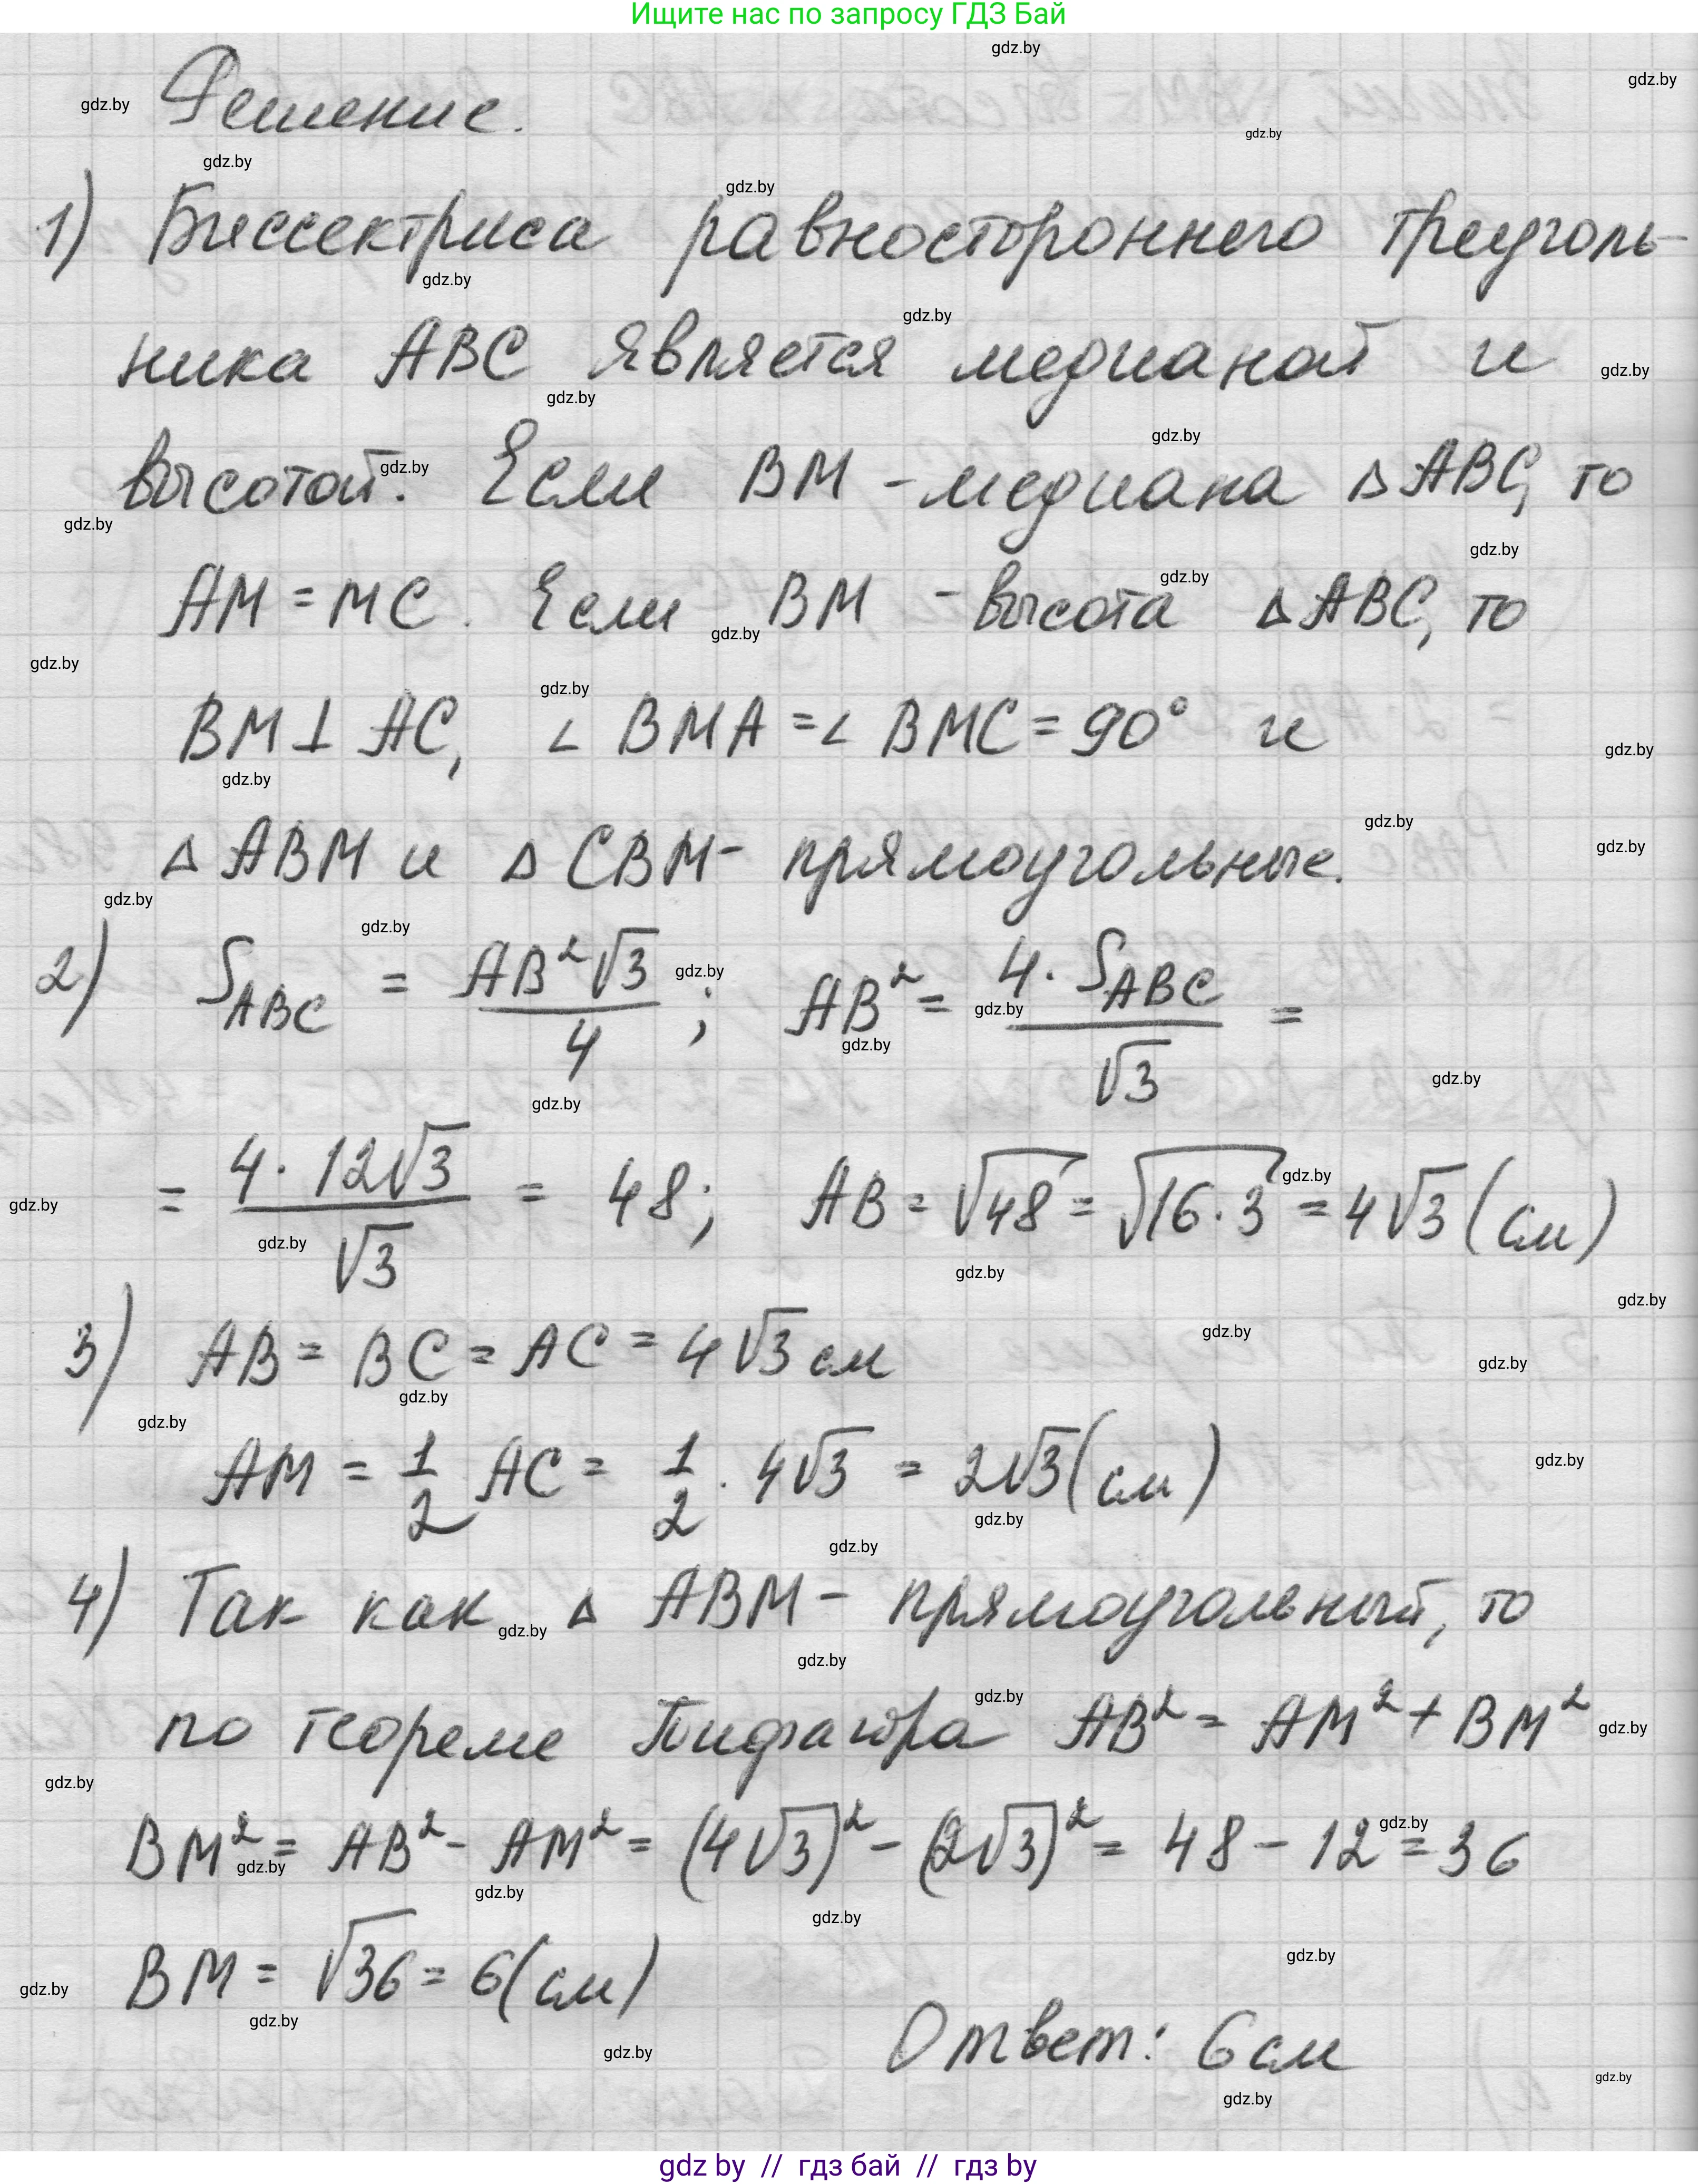 Ищите нас по запросу ГДЗ Бай
Решение.
1) Биссектриса равностороннего треуголь-
ника ABC является медианой и
высотой. Если BM - медиана △ABC, то
AM = MC. Если BM - высота △ABC, то
BM ⊥ AC, ∠BMA = ∠BMC = 90° и
△ABM и △CBM - прямоугольные.
2) S_ABC = AB²√3/4; AB² = 4·S_ABC/√3 =
= 4·12√3/√3 = 48; AB = √48 = √16·3 = 4√3 (см)
3) AB = BC = AC = 4√3 см
AM = 1/2 AC = 1/2 · 4√3 = 2√3 (см)
4) Так как △ABM - прямоугольный, то
по теореме Пифагора AB² = AM² + BM²
BM² = AB² - AM² = (4√3)² - (2√3)² = 48 - 12 = 36
BM = √36 = 6 (см)
Ответ: 6 см
gdz by // гдз бай // гдз by